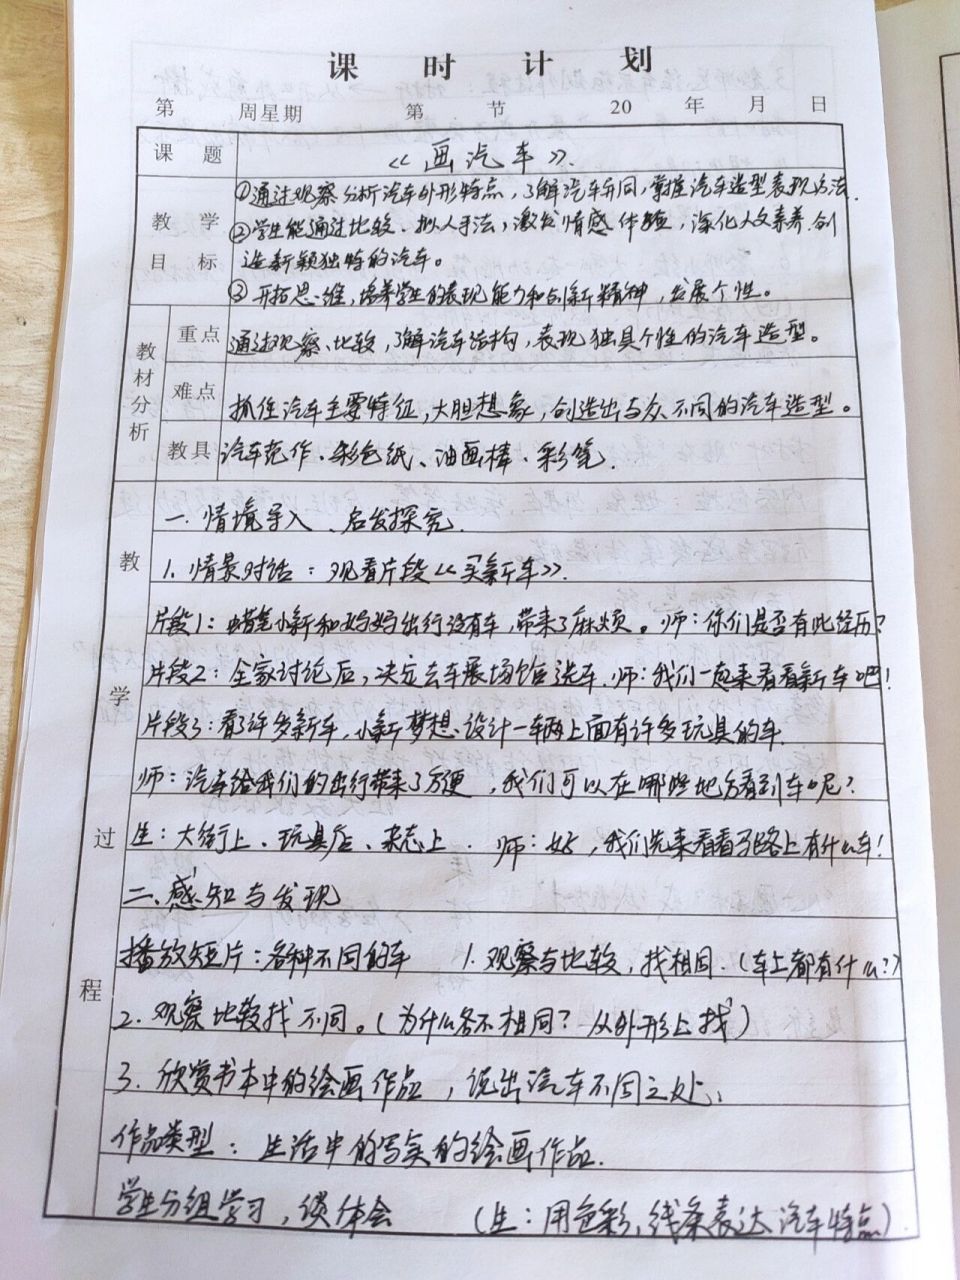 课 时 计 划
第 周星期 第 节 20 年 月 日
课 题 《画汽车》.
教 学 目 标
①通过观察分析汽车外形特点，了解汽车异同，掌握汽车造型表现方法.
②学生能通过比较、拟人手法，激发情感体验，深化人文素养.创
造新颖独特的汽车。
③开拓思维，培养学生的表现能力和创新精神，发展个性。
教材分析
重点 通过观察、比较，了解汽车结构，表现独具个性的汽车造型。
难点 抓住汽车主要特征，大胆想象，创造出与众不同的汽车造型。
教具 汽车范作、彩色纸、油画棒、彩笔.
教 学 过 程
一.情境导入、启发探究.
1.情景对话：观看片段《买新车》.
片段1：蜡笔小新和妈妈出行没有车，带来了麻烦。师：你们是否有此经历?
片段2：全家讨论后，决定去车展场馆选车.师：我们一起来看看新车吧!
片段3：看了许多新车，小新梦想设计一车辆上面有许多玩具的车.
师：汽车给我们的出行带来了方便，我们可以在哪些地方看到车呢?
生：大街上、玩具店、杂志上. 师：好，我们先来看看马路上有什么车!
二.感知与发现
播放短片：各种不同的车 1.观察与比较，找相同.(车上都有什么?)
2.观察比较找不同。(为什么各不相同? 从外形上找)
3.欣赏书本中的绘画作品，说出汽车不同之处；
作品类型：生活中的写实的绘画作品.
学生分组学习，谈体会 (生：用色彩，线条表达汽车特点)